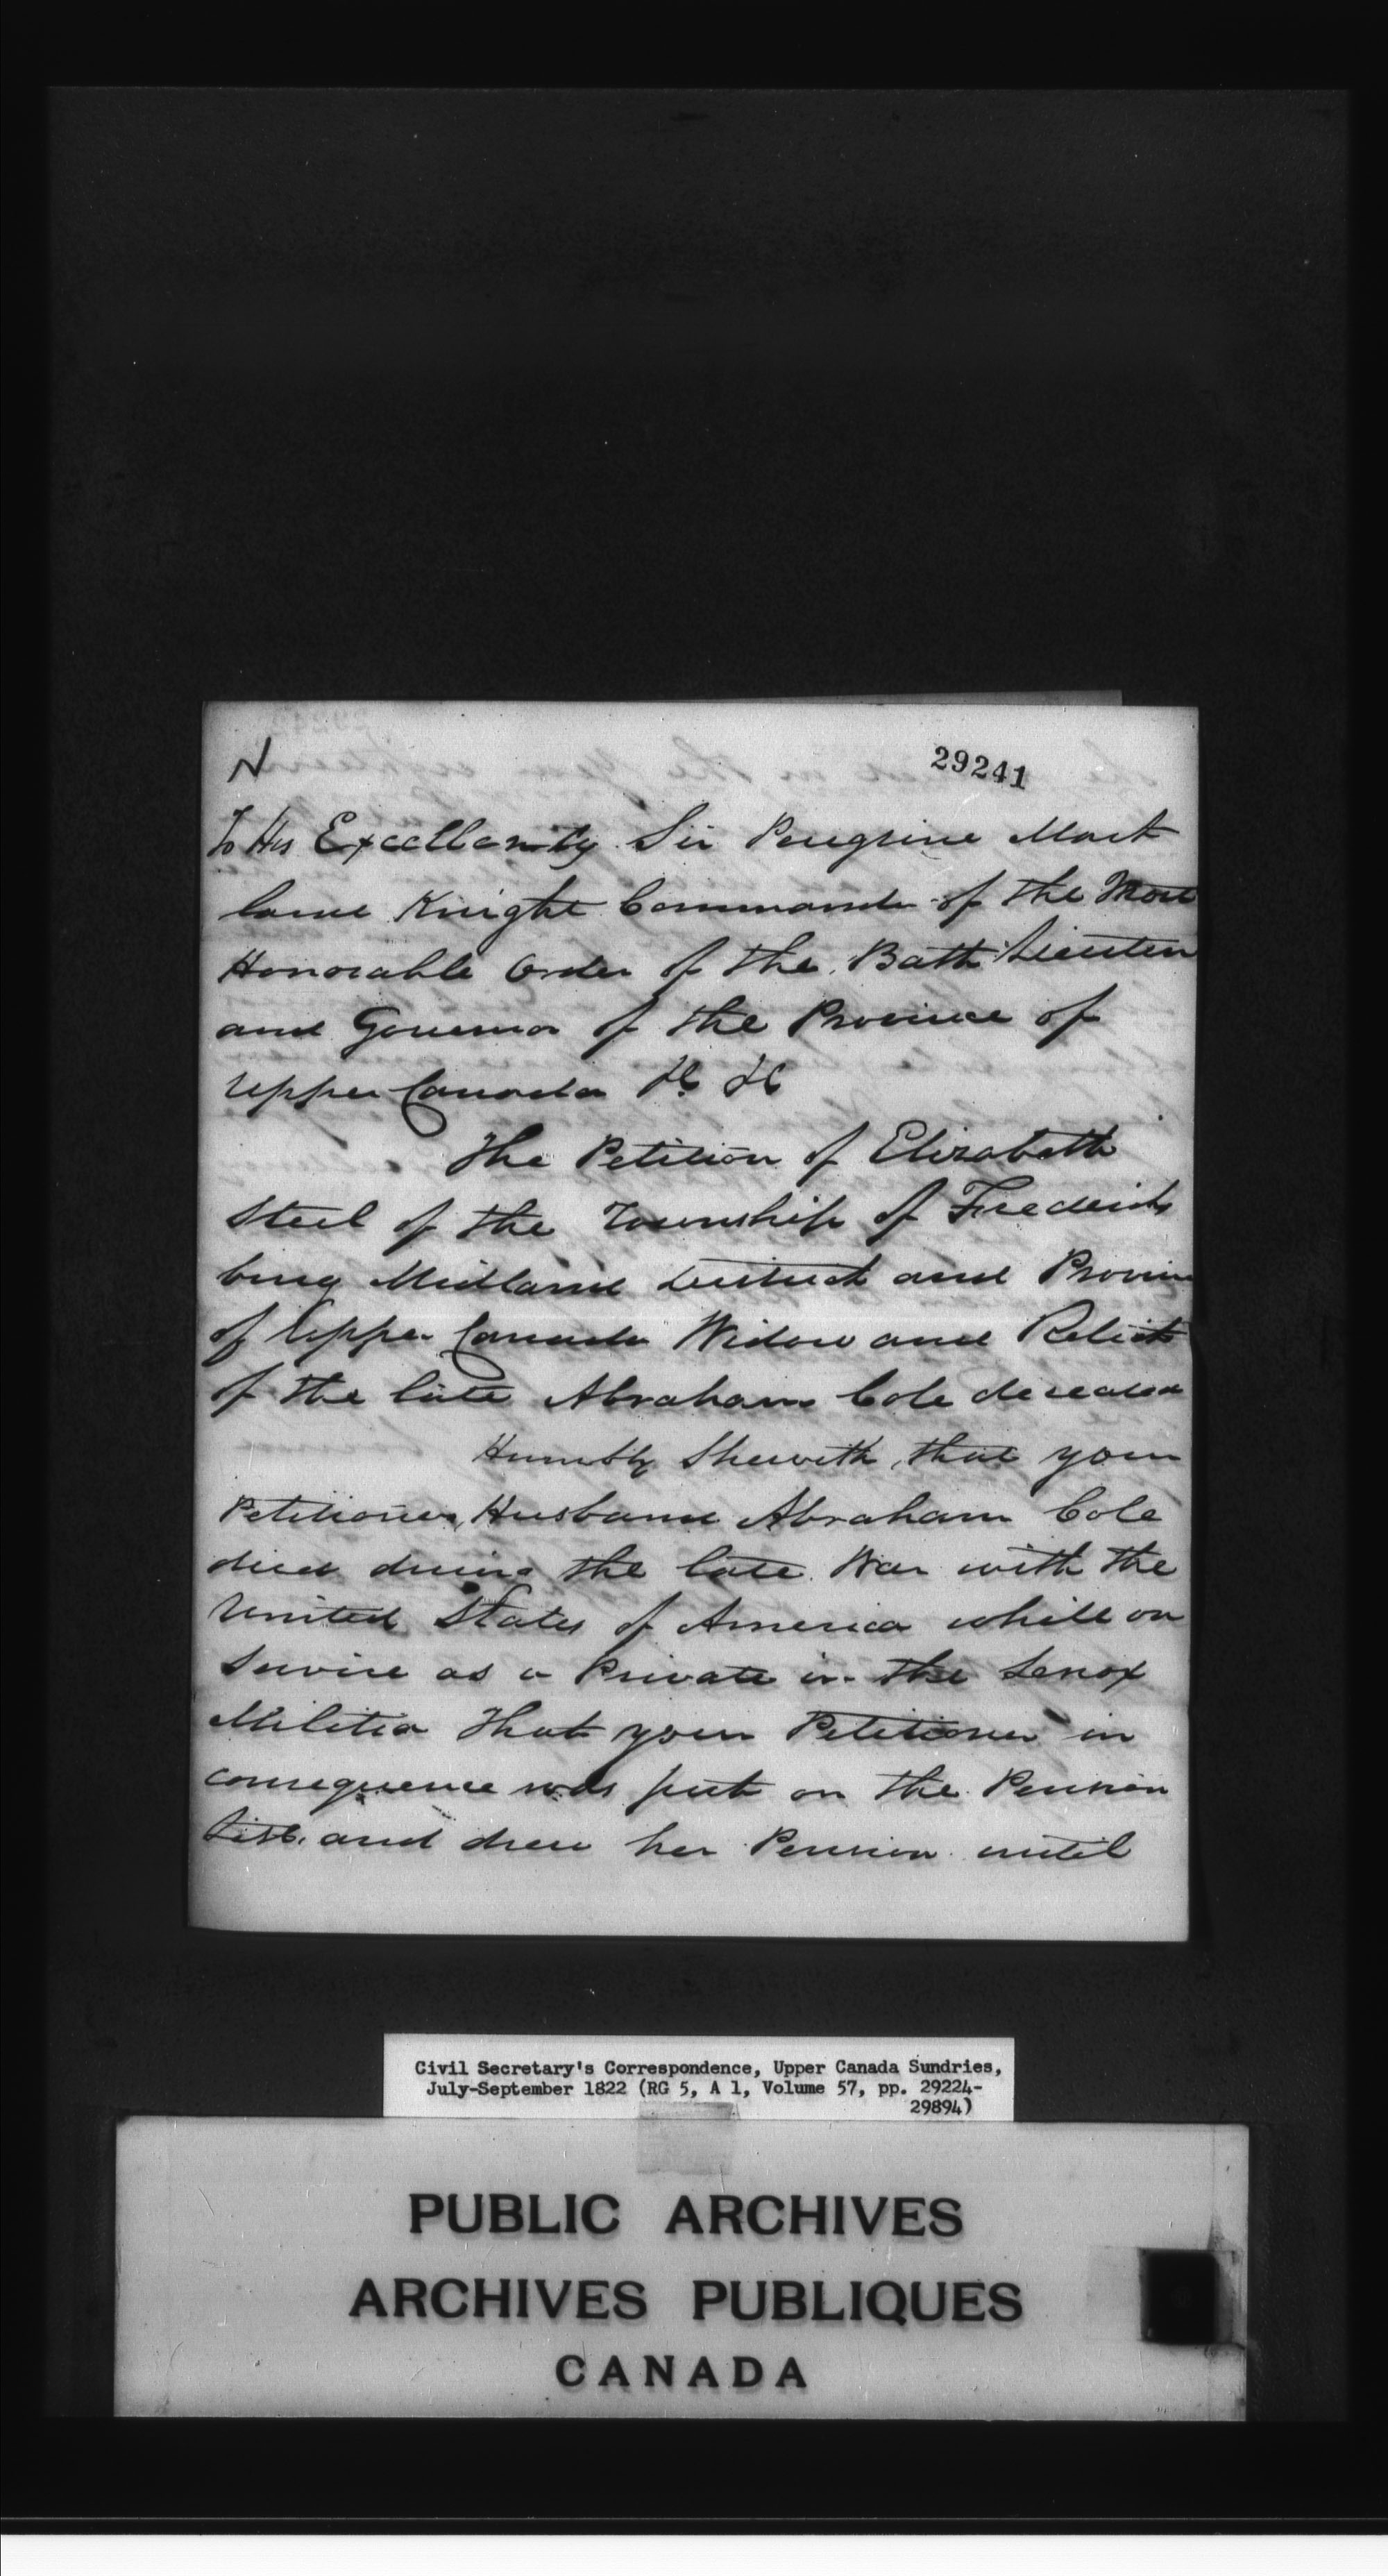 29241
To His Excellencty Sir Peregrine Mait
land Knight Commander of the Most
Honorable Order of the Bath Lieuten
and Governor of the Province of
Upper Canada &c &c
The Petition of Elizabeth
Steel of the Township of Fredericks
burg Midland District and Provin
of Upper Canada Widow and Relict
of the late Abraham Cole deceased
Humbly Sheweth, that your
Petitioners, Husband Abraham Cole
died during the late War with the
United States of America while on
Service as a Private in the Lenox
Militia That your Petitioner in
consequence was put on the Pension
List. and drew her Pension until
Civil Secretary's Correspondence, Upper Canada Sundries,
July-September 1822 (RG 5, A 1, Volume 57, pp. 29224-
29894)
PUBLIC ARCHIVES
ARCHIVES PUBLIQUES
CANADA